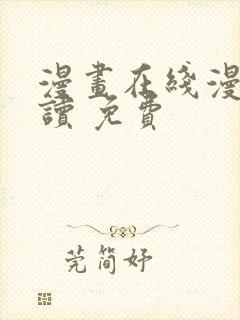 漫畫在綫漫
讀 免費
莞简妤